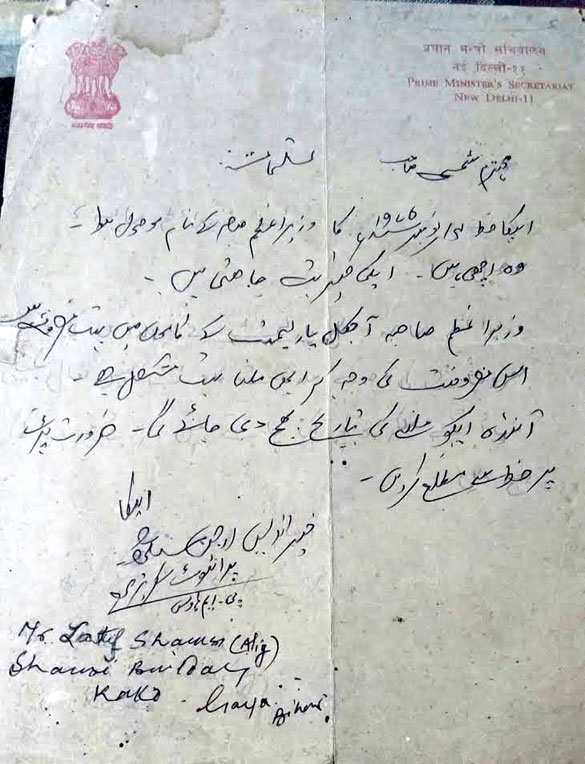 सत्यमेव जयते
प्रधान मन्त्री सचिवालय
नई दिल्ली-११
PRIME MINISTER'S SECRETARIAT
NEW DELHI-11
محترم شمسی صاحب تسلیمات
آپکا خط کا وزیراعظم کے نام موصول ہوا۔
وہ اچھی ہیں۔ آپکی خیریت چاہتی ہیں۔
وزیراعظم صاحبہ آجکل پارلیمنٹ کے کاموں میں بہت مصروف ہیں
اس مصروفیت کی وجہ کر ابھی ملنا بہت مشکل ہے۔
آئندہ آپکو ملنے کی تاریخ بھیج دی جائے گی۔ ضرورت پڑنے
پر خط سے مطلع کریں۔
آپکا
خیر اندیش
پرائیوٹ سکریٹری
پی۔ایم ہاوس
Mr. Latif Shamsi (Alig)
Shamsi Building
Kako - Gaya. Bihar.